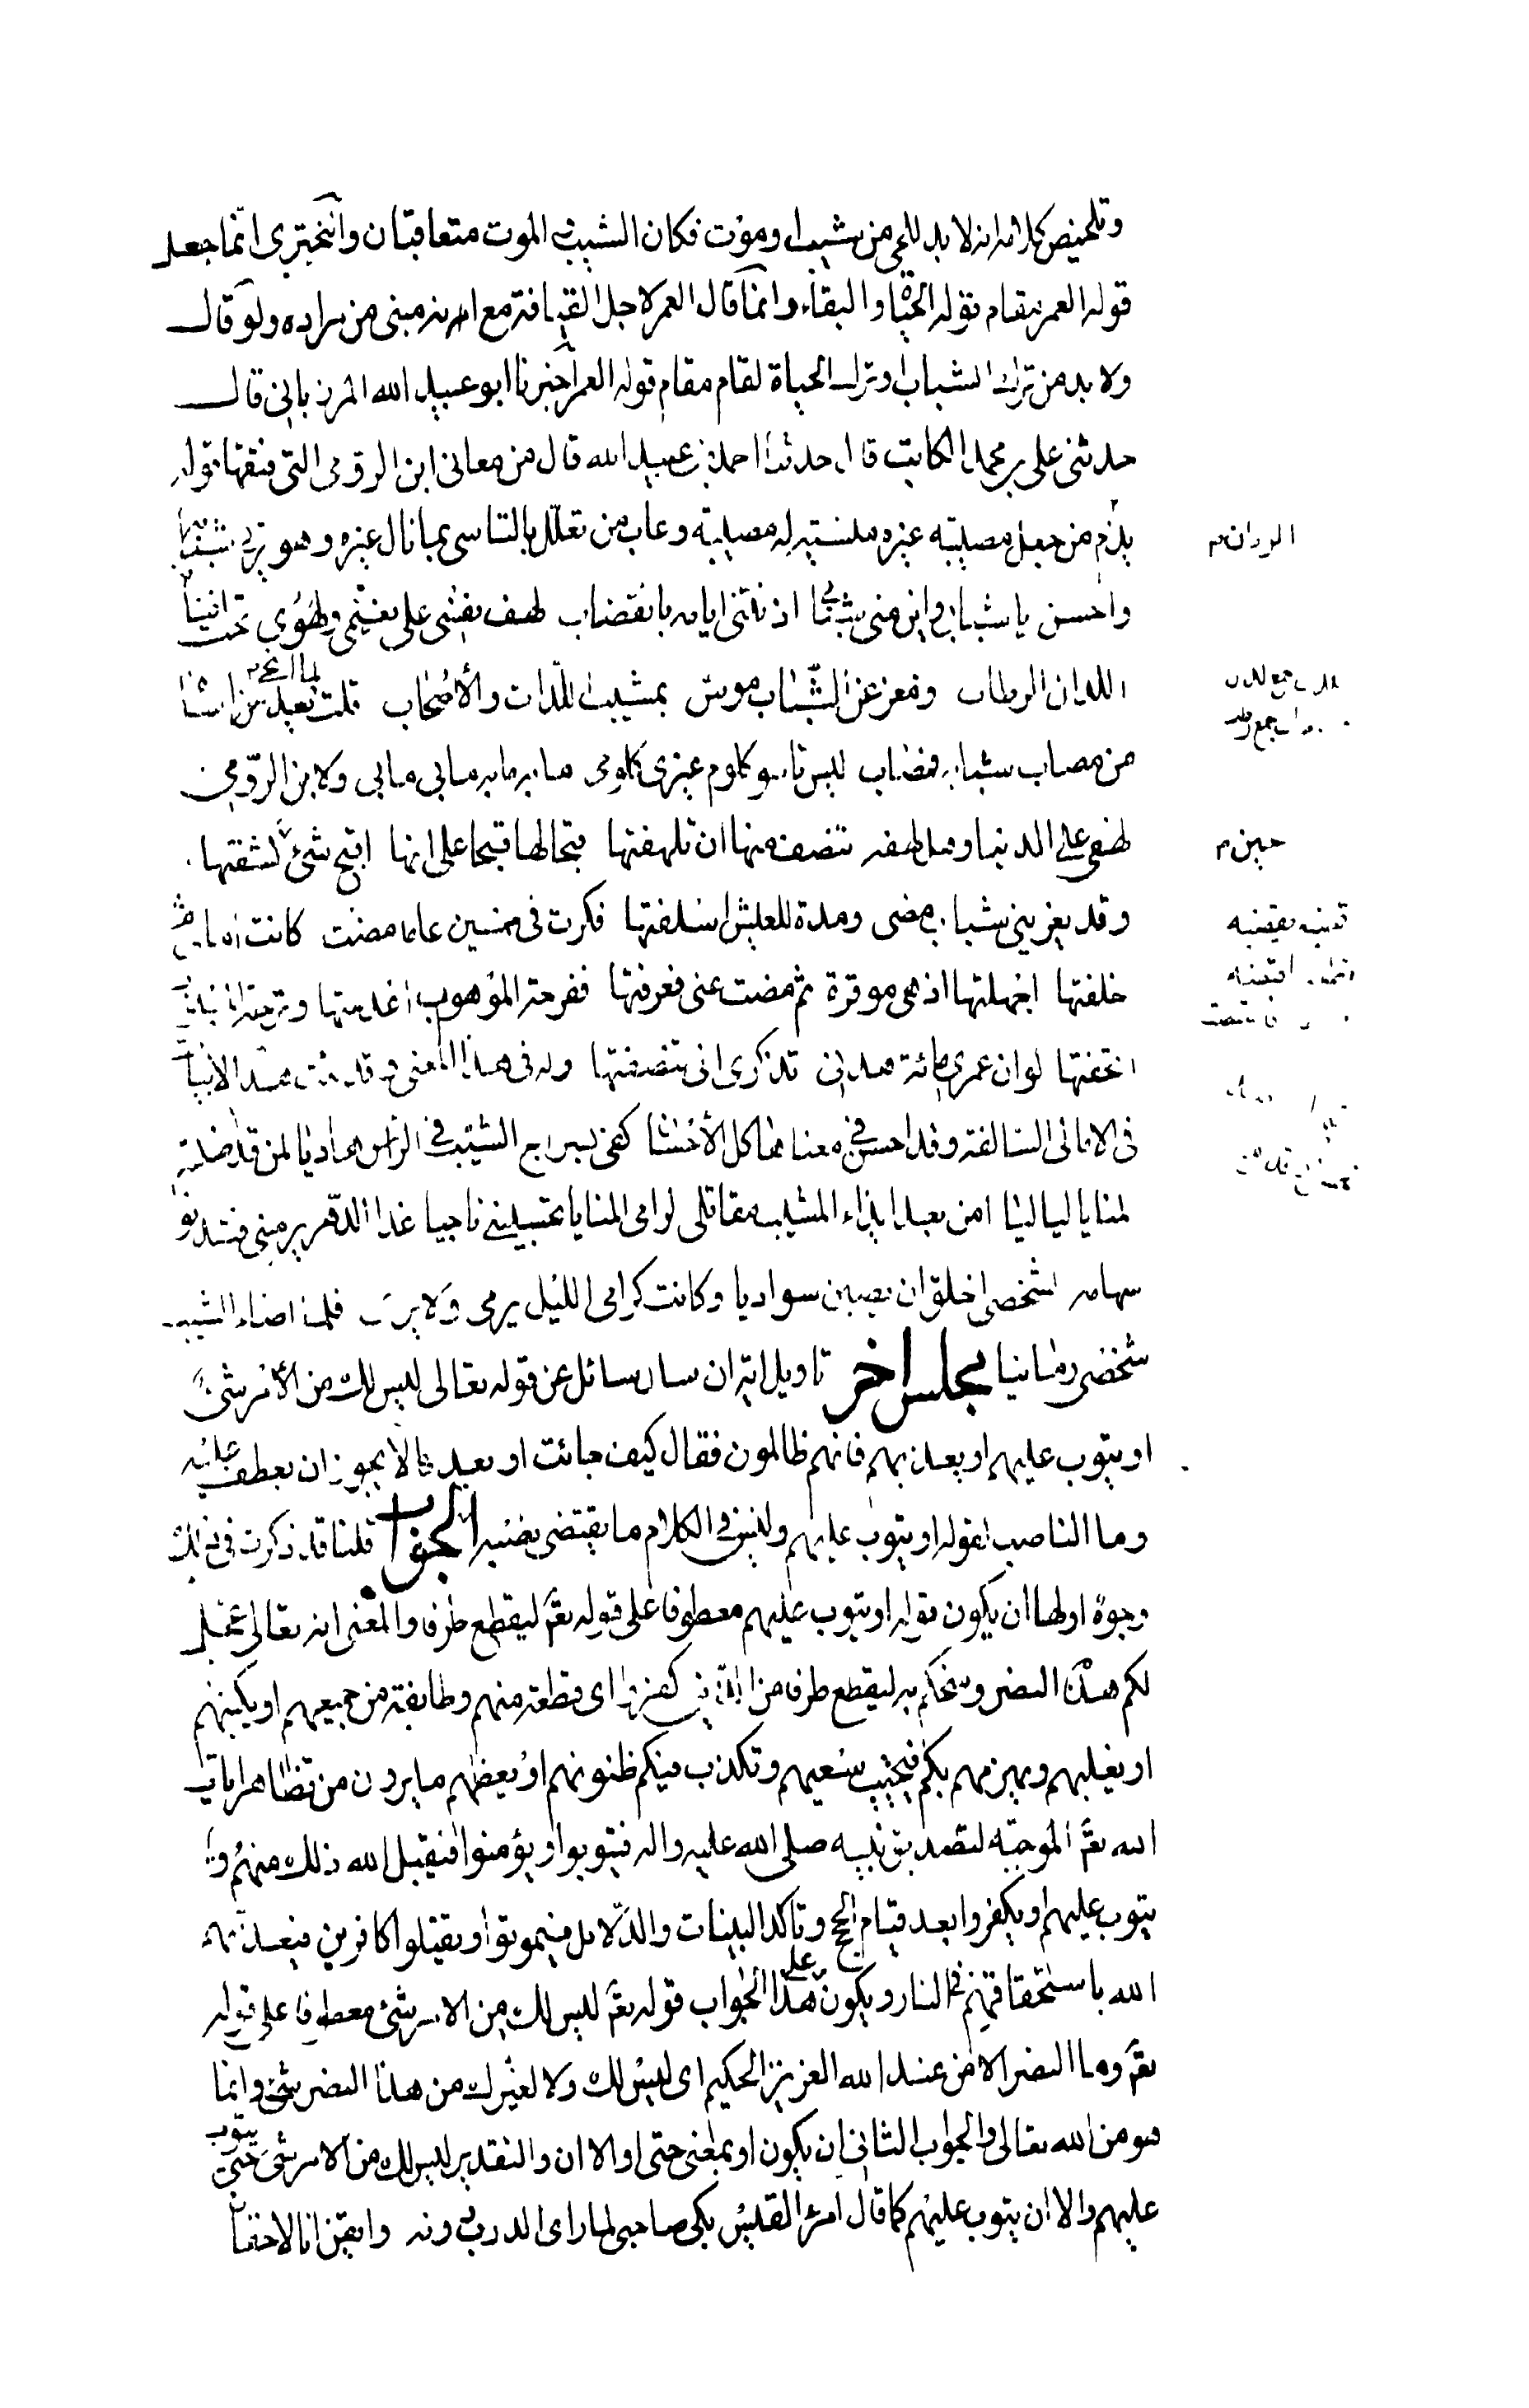 وتلخيص كلامه انه لا بد للحي من شيب او موت فكان الشيب والموت متعاقبان والبحتري انما جعل
قوله العمر مقام قوله الحياة والبقاء وانما قال العمر لاجل القافية مع انه مبنى من مراده ولو قال
ولا بد من ترك الشباب او ترك الحياة لقام مقام قوله العمر اخبرنا ابو عبيد الله المرزباني قال
حدثني علي بن محمد الكاتب قال حدثنا احمد بن عبيد الله قال من معاني ابن الرومي التي فتقها قوله
يذم من جعل مصيبة غيره مسلية له مصيبته وعاب من تعلل بالتاسى بما نال غيره وهو يرثي شبابه
واحسن يا شبابي واين مني شبابي اذنتني ايامه بانقضاب لهف نفسي على نعيمي ولهوي تحت افنانه
اللدان الرطاب ومعز عن الشباب موس بمشيب اللدات والأصحاب قلت لما انتحى بعيد من اسا
من مصاب شبابه فمصاب ليس تاسو كلوم غيري كلومى ما به ما به وما بي ما بي ولابن الرومي
لهفي على الدنيا وهل لهفة تنصف منها ان تلهفتها قبحا لها قبحا على انها اقبح شئ كشفتها
وقد يعزيني شباب مضى ومدة للعيش اسلفتها فكرت في خمسين عاما مضت كانت امامي ثم
خلفتها اجهلتها اذ هي موقرة ثم مضت عني فعرفتها ففرحة الموهوب اعدمتها وترحة المسلوب
اتحفتها لو ان عمري مائة هدني تذكري اني تنصفتها وله في هذا المعنى وقد مضت هذه الابيات
فى الامالى السالفة وقد احسن فى معناها كل الأحسان كفى بسراج الشيب في الراس هاديا لمن قد اضلته
المنايا لياليا امن بعد ابداء المشيب مقاتلى لرامى المنايا تحسبيني ناجيا غدا الدهر يرميني فتدنو
سهامه لشخصى اخلق ان يصبن سواديا وكانت كرامى الليل يرمى ولا يرى فلما اضاء الشيب
شخصى رمانيا مجلس اخر تاويل اية ان سال سائل عن قوله تعالى ليس لك من الأمر شئ
او يتوب عليهم او يعذبهم فانهم ظالمون فقال كيف جائت او بعد ما لا يجوز ان يعطف عليه
وما الناصب لقوله او يتوب عليهم وليس في الكلام ما يقتضى نصبه الجواب قلنا قد ذكرت في ذلك
وجوه اولها ان يكون قوله او يتوب عليهم معطوفا على قوله تع ليقطع طرفا والمعنى انه تعالى عجل
لكم هذا النصر ومنحكم به ليقطع طرفا من الذين كفروا اى قطعة منهم وطايفة من جميعهم او يكبتهم
او يغلبهم ويهزمهم بكم فيخيب سعيهم وتكذب فيكم ظنونهم او يعظهم ما يردن من تظاهر ايات
الله تع الموجبة لتصديق نبيه صلى الله عليه واله فيتوبوا ويؤمنوا فيقبل الله ذلك منهم و
يتوب عليهم او يكفروا بعد قيام الحجج وتاكد البينات والدلايل فيموتوا او يقتلوا كافرين فيعذبهم
الله باستحقاقهم في النار ويكون على هذا الجواب قوله تع ليس لك من الامر شئ معطوفا على قوله
تع وما النصر الا من عند الله العزيز الحكيم اى ليس لك ولا لغيرك من هذا النصر شئ وانما
هو من الله تعالى والجواب الثانى ان يكون او بمعنى حتى او الا ان والتقدير ليس لك من الامر شئ حتى يتوب
عليهم والا ان يتوب عليهم كما قال امرؤ القيس بكى صاحبى لما راى الدرب دونه وايقن انا لاحقان
حين